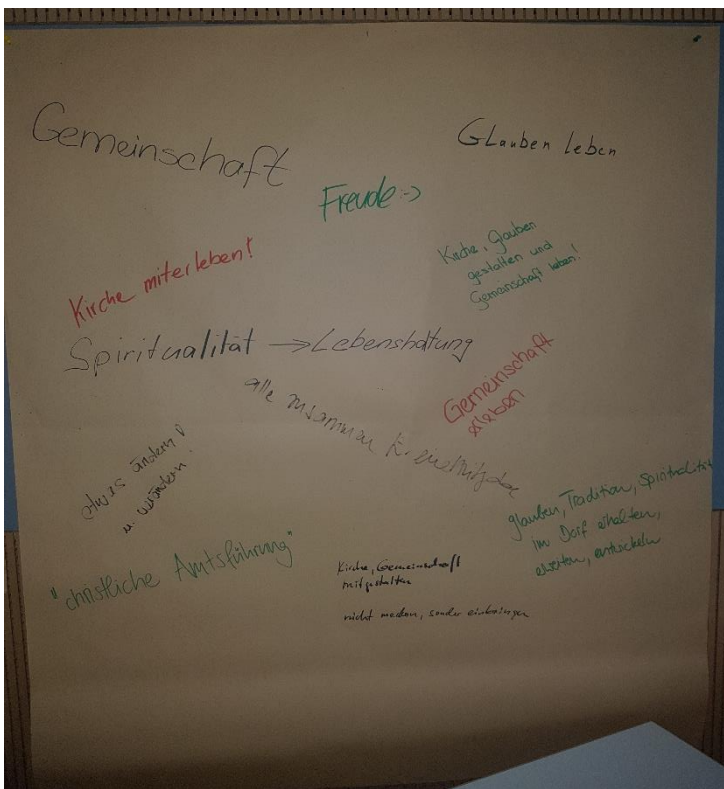 Gemeinschaft
Glauben leben
Freude :-)
Kirche miterleben!
Kirche, Glauben
gestalten und
Gemeinschaft leben!
Spiritualität → Lebenshaltung
Gemeinschaft
erleben
alle zusammen
etwas ändern!
u. verändern!
glauben, Tradition, Spiritualität
im Dorf erhalten,
entwickeln
"christliche Amtsführung"
Kirche, Gemeinschaft
mitgestalten
nicht meckern, sonder einbringen